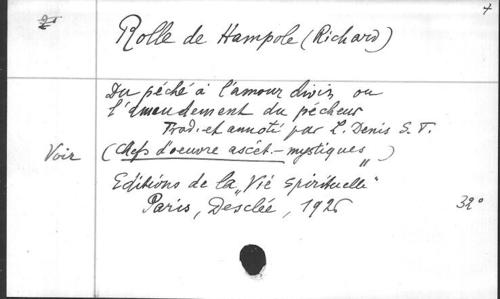 Rolle de Hampole (Richard)
Du péché à l'amour divin ou
l'amendement du pécheur
Trad. et annoté par L. Denis S. T.
Voir (Chefs d'oeuvre ascét.-mystiques")
Editions de la „Vie spirituelle"
Paris, Desclée, 1926 32°